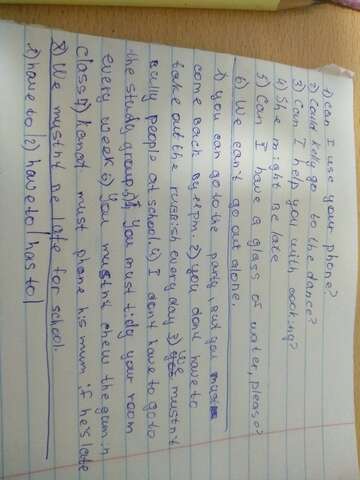 1) can I use your phone?
2) Could Kelly go to the dance?
3) Can I help you with cooking?
4) She might be late
5) Can I have a glass of water, please?
6) We can't go out alone.
1) you can go to the party, but you must
come back by 11pm. 2) you don't have to
take out the rubbish every day 3) We mustn't
bully people at school. 4) I don't have to go to
the study group. 5) You must tidy your room
every week 6) You mustnt chew the gum in
class 7) hanat must phone his mum if he's late
8) We mustnt be late for school.
1) have to 2) have to / has to